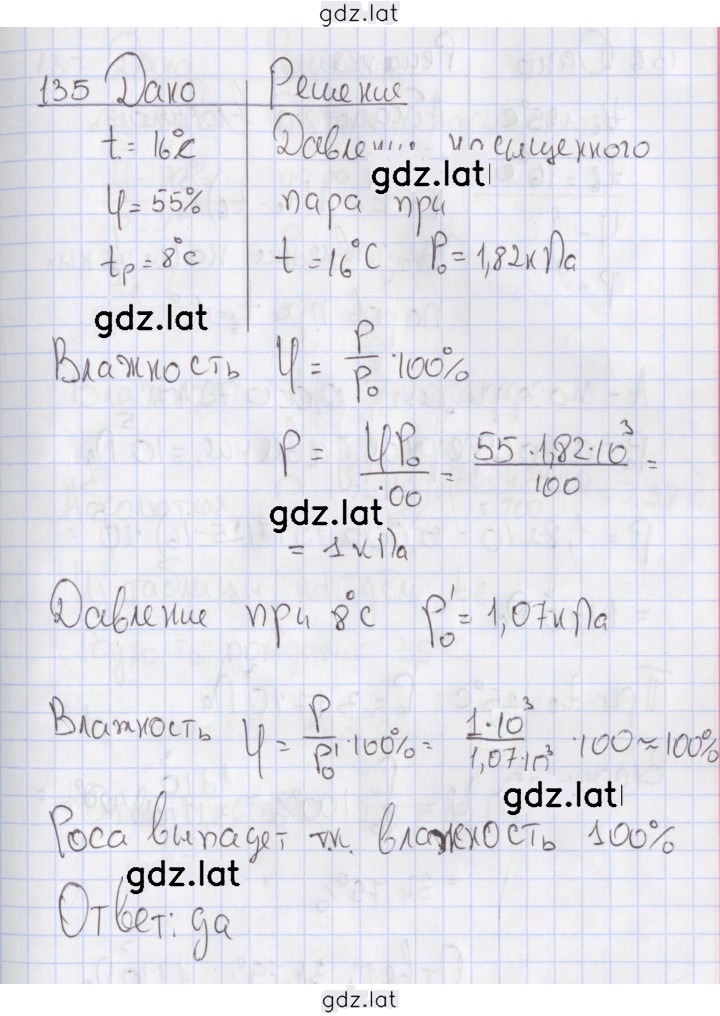 gdz.lat
135 Дано Решение
t = 16°C Давление насыщенного
gdz.lat
φ = 55% пара при
tр = 8°C t = 16°C P₀ = 1,82 кПа
gdz.lat
Влажность φ = P/P₀ · 100%
P = φP₀/100 = 55 · 1,82 · 10³/100 =
gdz.lat
= 1 кПа
Давление при 8°C P₀' = 1,07 кПа
Влажность φ = P/P₀' · 100% = 1 · 10³/1,07 · 10³ · 100 ≈ 100%
gdz.lat
Роса выпадет т.к. влажность 100%
gdz.lat
Ответ: да
gdz.lat